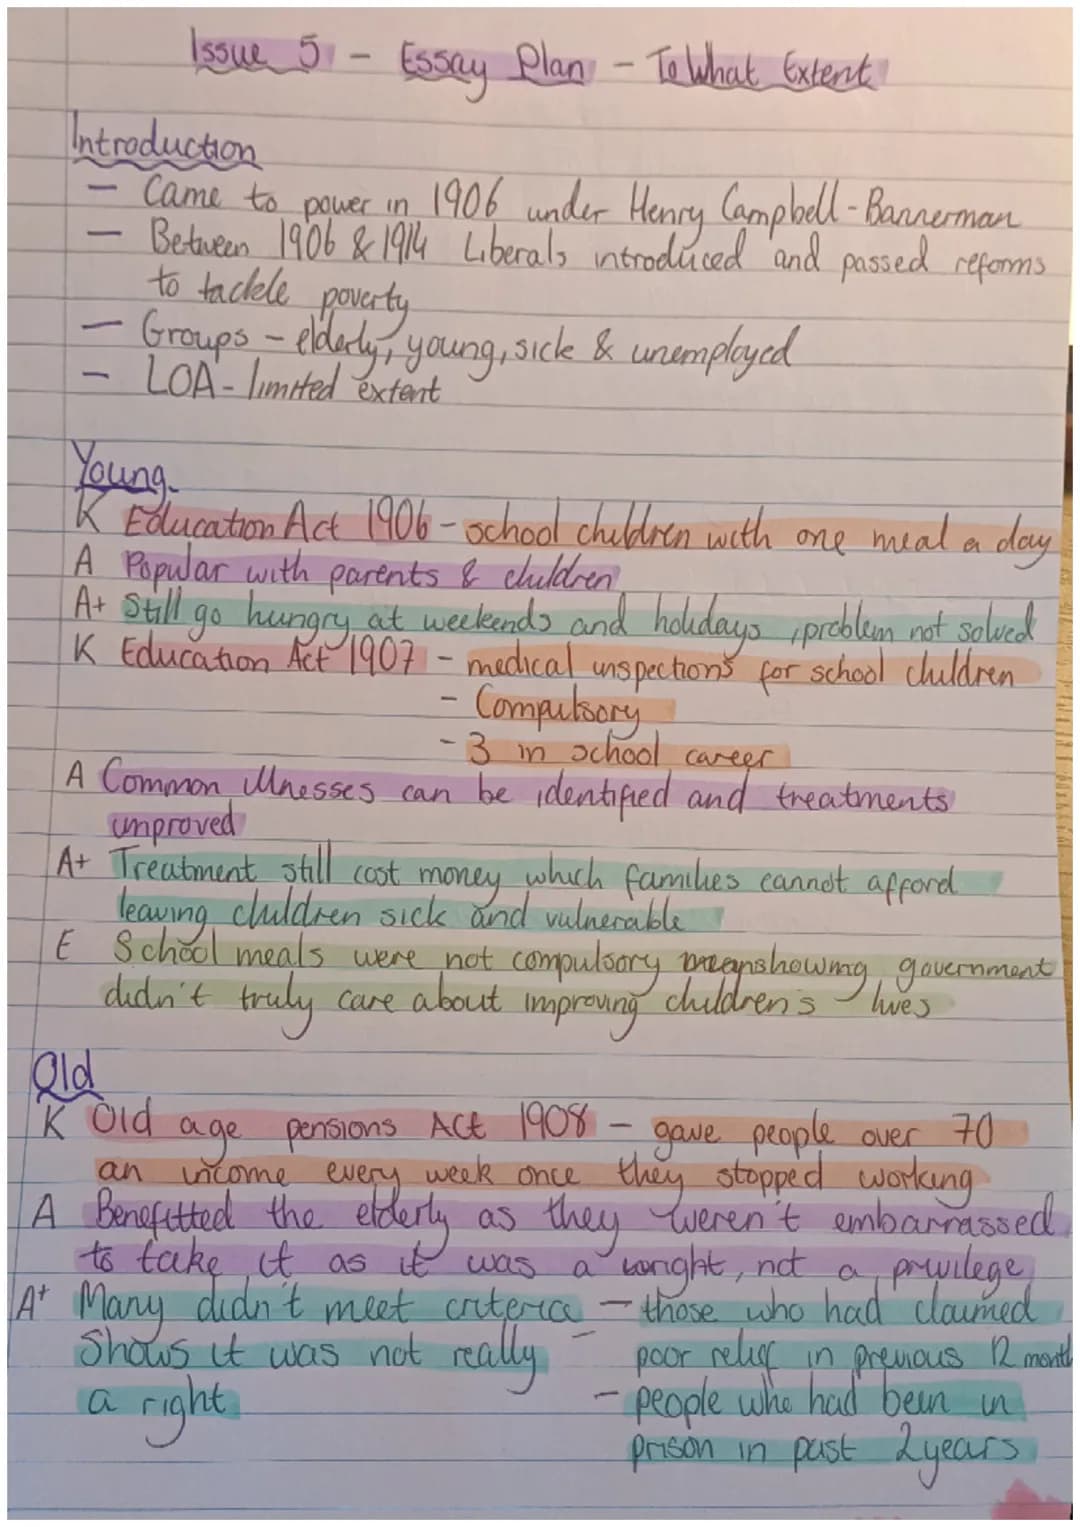 Issue 5 - Essay Plan - To What Extent
Introduction
- Came to power in 1906 under Henry Campbell-Bannerman
- Between 1906 & 1914 Liberals introduced and passed reforms
to tackle poverty
- Groups - elderly, young, sick & unemployed
- LOA - limited extent
Young
K Education Act 1906 - school children with one meal a day
A Popular with parents & children
A+ Still go hungry at weekends and holidays, problem not solved
K Education Act 1907 - medical inspections for school children
- Compulsory
- 3 in school career
A Common illnesses can be identified and treatments
improved
A+ Treatment still cost money which families cannot afford
leaving children sick and vulnerable
E School meals were not compulsory showing government
didn't truly care about improving children's lives
Old
K Old age pensions Act 1908 - gave people over 70
an income every week once they stopped working
A Benefitted the elderly as they weren't embarrassed
to take it as it was a right, not a privilege
A+ Many didn't meet criteria - those who had claimed
Shows it was not really - poor relief in previous 12 month
a right - people who had been in
prison in past 2 years